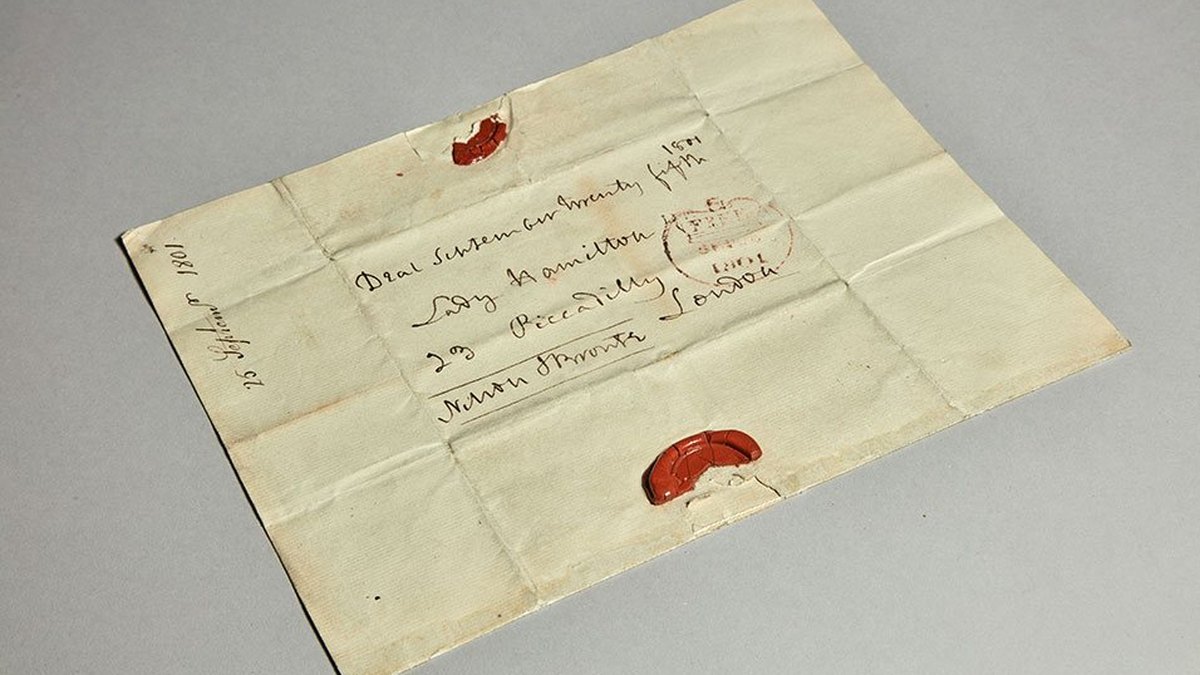 1801
Deal September twenty fifth
Lady Hamilton
23 Piccadilly London
Nelson & Bronte
FREE
1801
25 September 1801